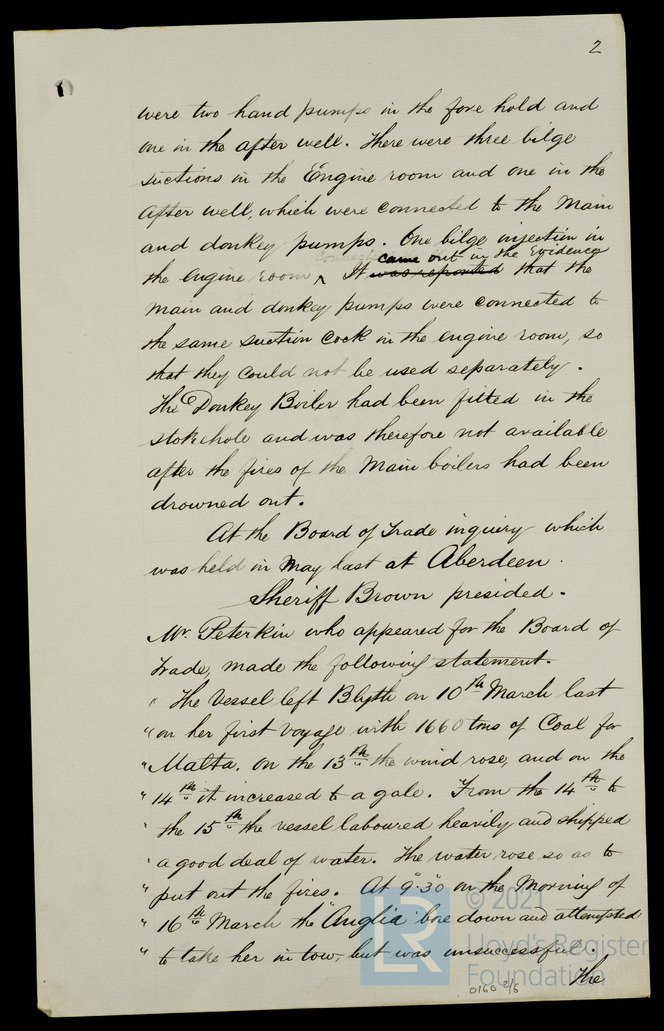 2
were two hand pumps in the fore hold and
one in the after well. There were three bilge
suctions in the Engine room and one in the
after well, which were connected to the Main
and donkey pumps. One bilge injection in
came out in the Evidence
the engine room ^ It was reported that the
main and donkey pumps were connected to
the same suction cock in the engine room, so
that they could not be used separately.
The Donkey Boiler had been fitted in the
stokehole and was therefore not available
after the fires of the Main boilers had been
drowned out.
At the Board of Trade inquiry which
was held in May last at Aberdeen.
Sheriff Brown presided.
Mr. Peterkin who appeared for the Board of
Trade, made the following statement.
" The Vessel left Blyth on 10th March last
" on her first voyage with 1660 tons of Coal for
" Malta. On the 13th the wind rose, and on the
" 14th it increased to a gale. From the 14th to
" the 15th the vessel laboured heavily and shipped
" a good deal of water. The water rose so as to
" put out the fires. At 9.30 on the Morning of
" 16th March the "Anglia" bore down and attempted
" to take her in tow, but was unsuccessful.
The
© 2021
LR
Lloyd's Register
Foundation
0160 2/6